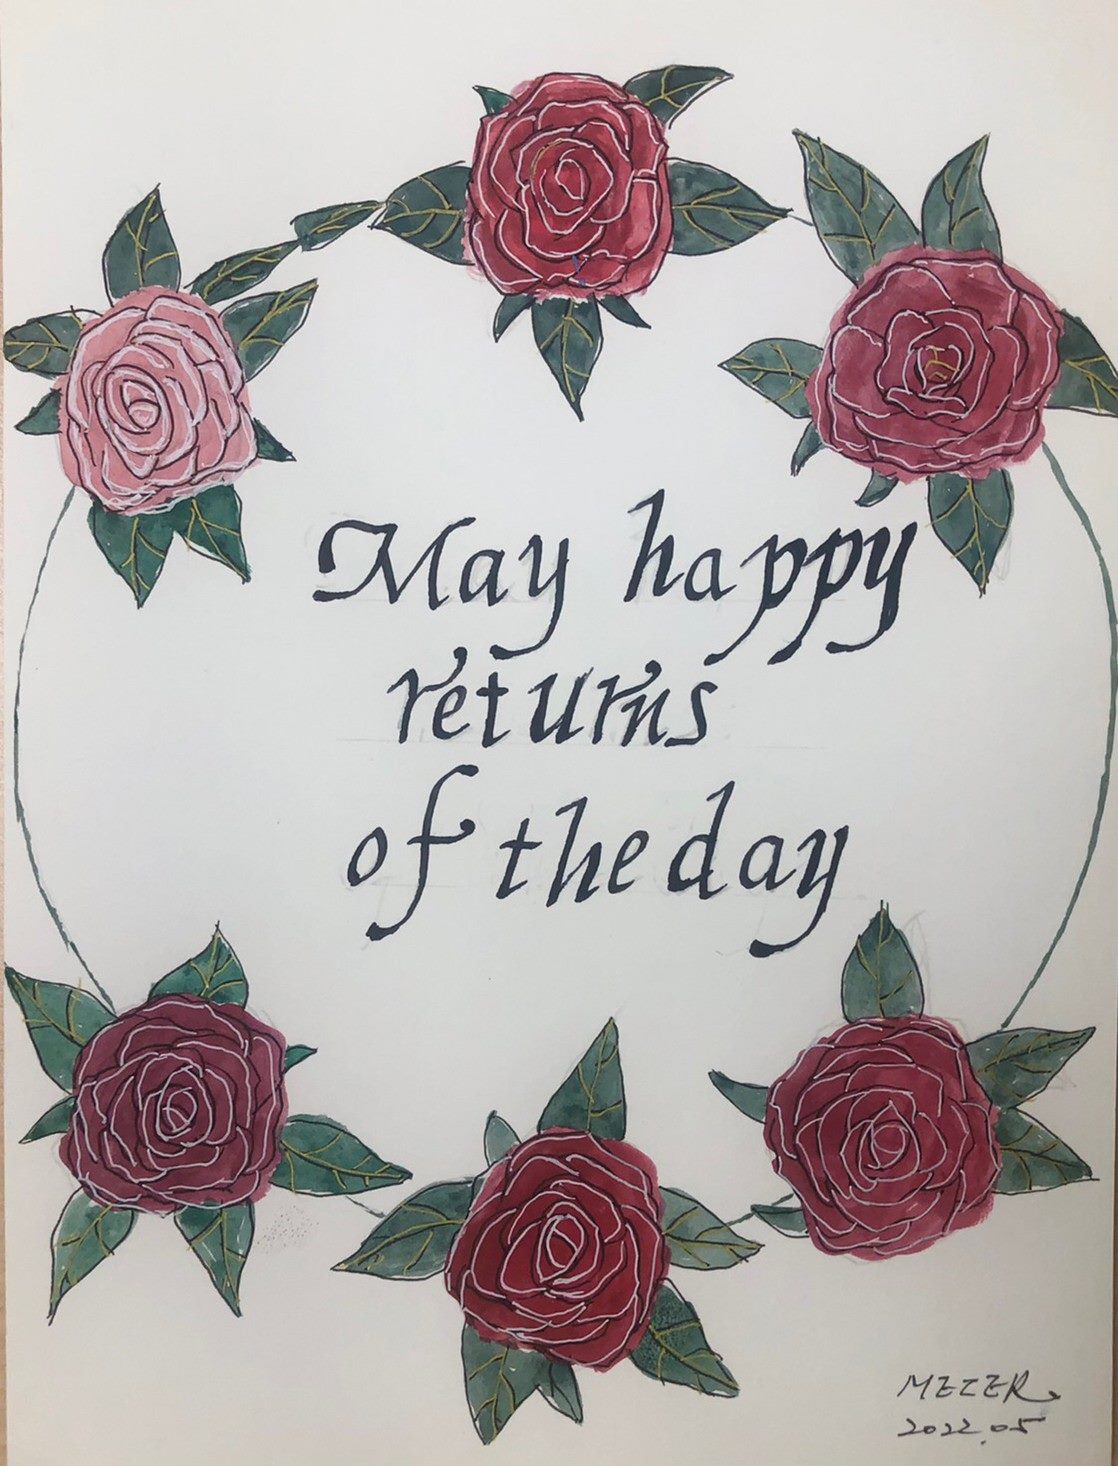 May happy
returns
of the day
MEZER
2022.05